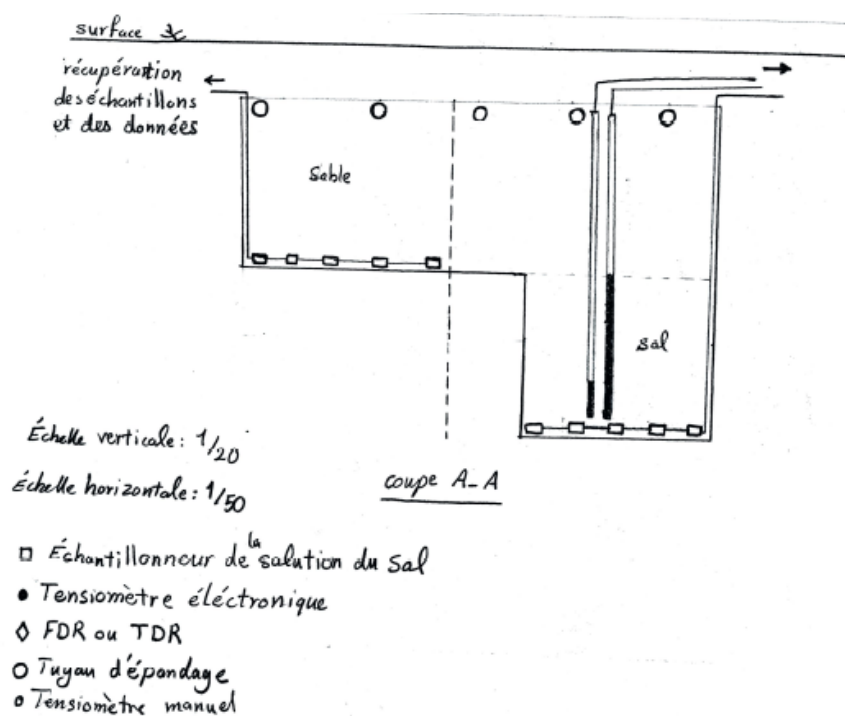 surface
récupération
des échantillons
et des données
Sable
sal
Échelle verticale: 1/20
Échelle horizontale: 1/50
coupe A-A
□ Échantillonneur de la salution du Sal
• Tensiomètre éléctronique
◊ FDR ou TDR
○ Tuyau d'épandage
o Tensiomètre manuel